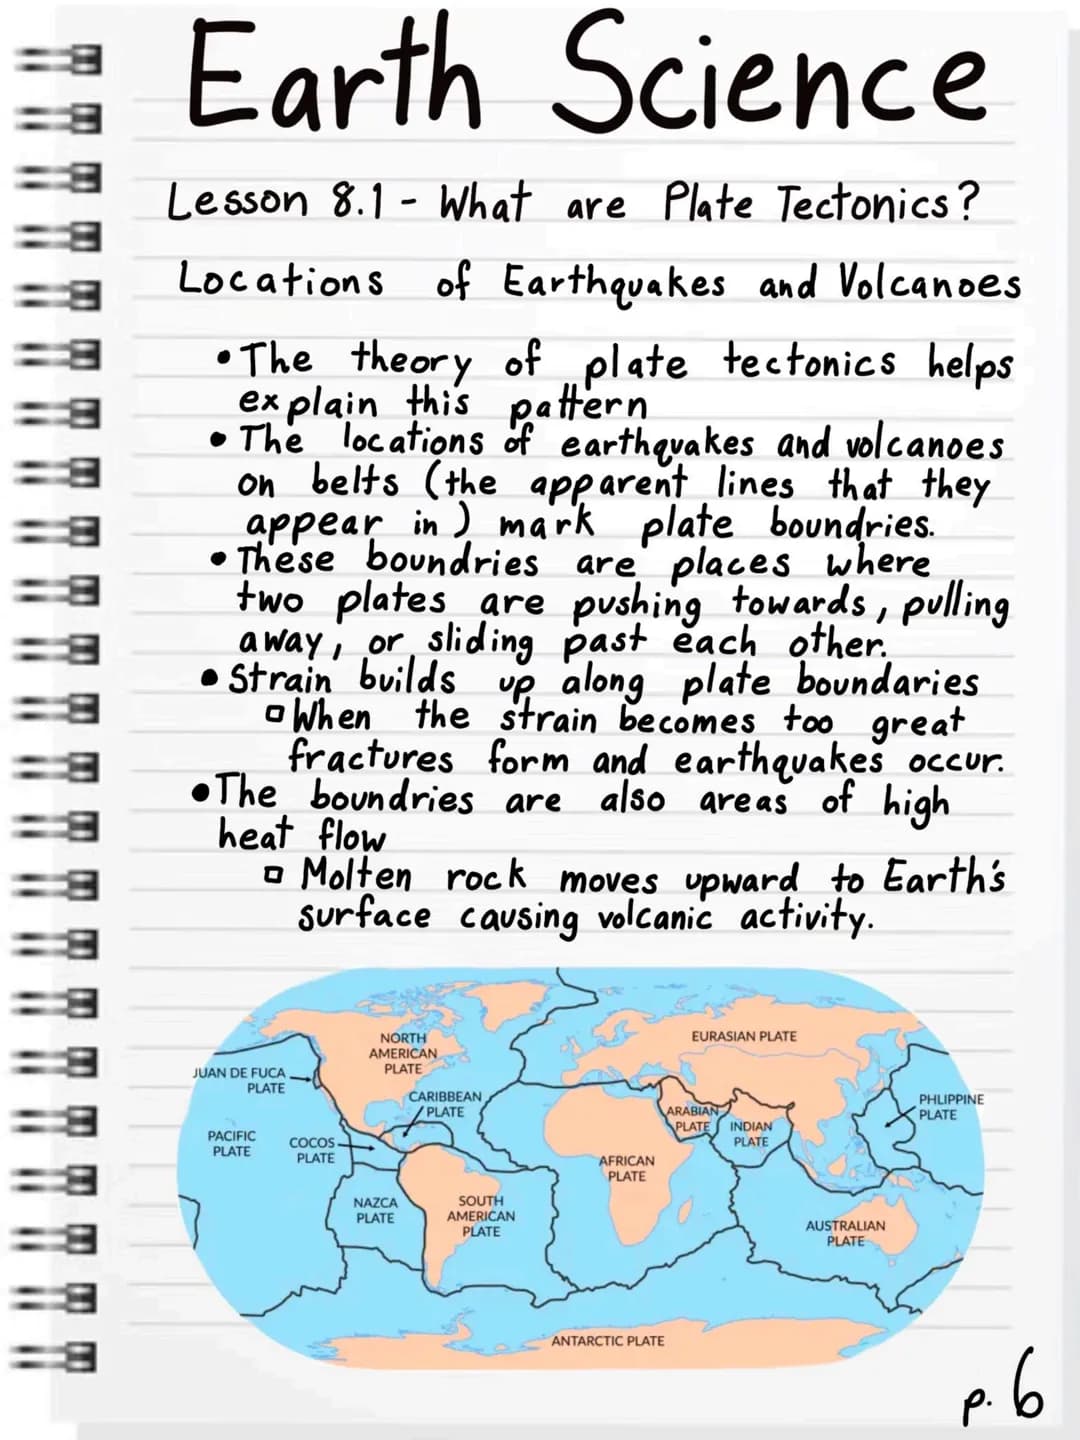 Earth Science
Lesson 8.1 - What are Plate Tectonics?
Locations of Earthquakes and Volcanoes
• The theory of plate tectonics helps
explain this pattern
• The locations of earthquakes and volcanoes
on belts (the apparent lines that they
appear in) mark plate boundries.
• These boundries are places where
two plates are pushing towards, pulling
away, or sliding past each other.
• Strain builds up along plate boundaries
▫ When the strain becomes too great
fractures form and earthquakes occur.
• The boundries are also areas of high
heat flow
▫ Molten rock moves upward to Earth's
surface causing volcanic activity.
NORTH
AMERICAN
PLATE
EURASIAN PLATE
JUAN DE FUCA
PLATE
CARIBBEAN
PLATE
ARABIAN
PLATE
INDIAN
PLATE
PHLIPPINE
PLATE
PACIFIC
PLATE
COCOS
PLATE
AFRICAN
PLATE
NAZCA
PLATE
SOUTH
AMERICAN
PLATE
AUSTRALIAN
PLATE
ANTARCTIC PLATE
p. 6